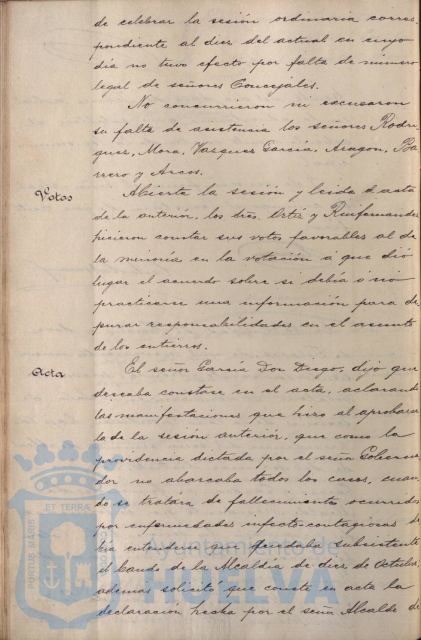 de celebrar la sesión ordinaria corres-
pondiente al diez del actual en cuyo
dia no tuvo efecto por falta de numero
legal de señores Concejales.
No concurrieron ni excusaron
su falta de asistencia los señores Rodri-
guez, Mora, Vazquez Garcia, Aragon, Ba
rrero y Arcos.
Votos
Abierta la sesión y leida el acta
de la anterior, los sres. Ortiz y Ruifernandez
hicieron constar sus votos favorables al de
la minoria en la votación á que dió
lugar el acuerdo sobre si debía ó nó
practicarse una información para de
purar responsabilidades en el asunto
de los entierros.
Acta
El señor García Don Diego, dijo que
deseaba constase en el acta, aclarando
las manifestaciones que hizo al aprobarse
la de la sesión anterior, que como la
providencia dictada por el señor Goberna
dor no abarcaba todos los casos, cuan
do se tratara de fallecimientos ocurridos
por enfermedades infecto-contagiosas de
bia entenderse que quedaba subsistente
el bando de la Alcaldia de diez de Octubre,
ademas solicitó que conste en acta la
declaración hecha por el señor Alcalde de
PORTUS MARIS ET TERRAE
Ayuntamiento de
HUELVA